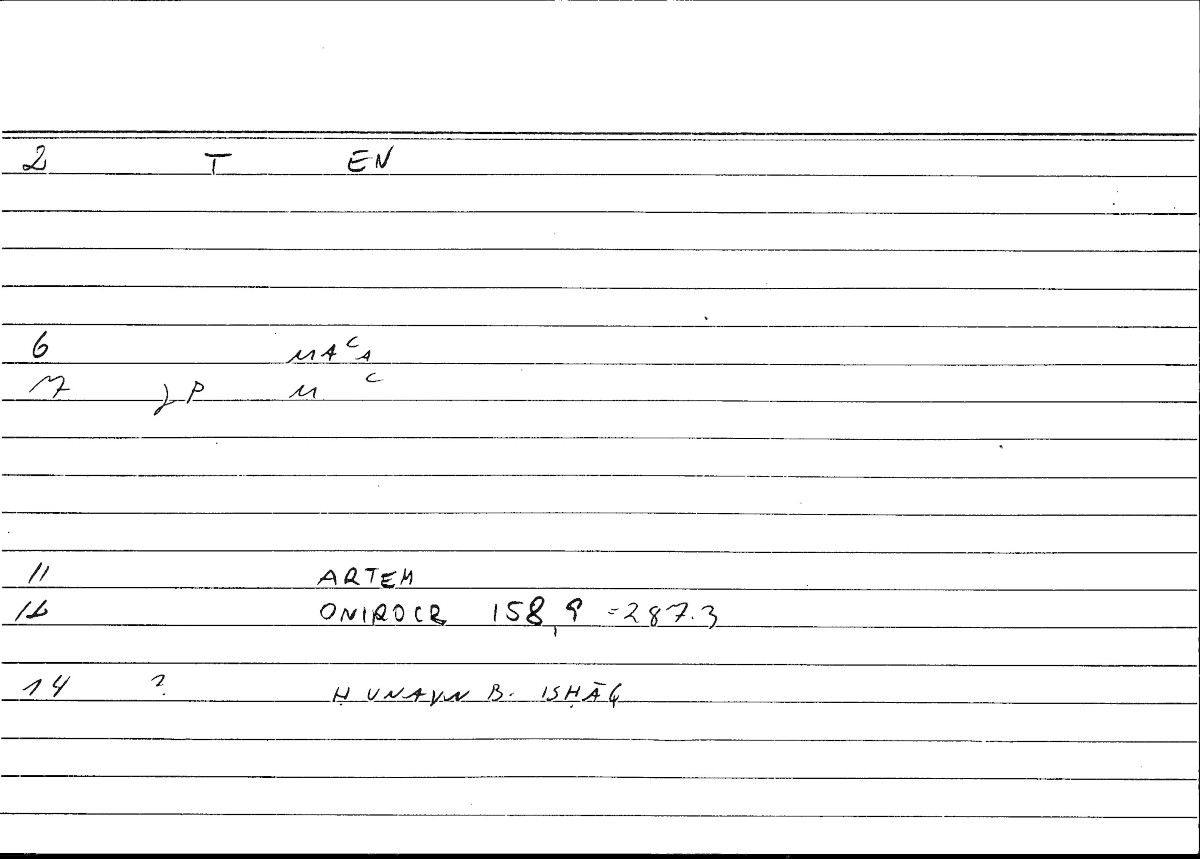 2 T EN
6 MAᶜA
7 P M ᶜ
11 ARTEM
12 ONIROCR 158,9 =287.3
14 ? ḤUNAYN B. ISḤĀQ